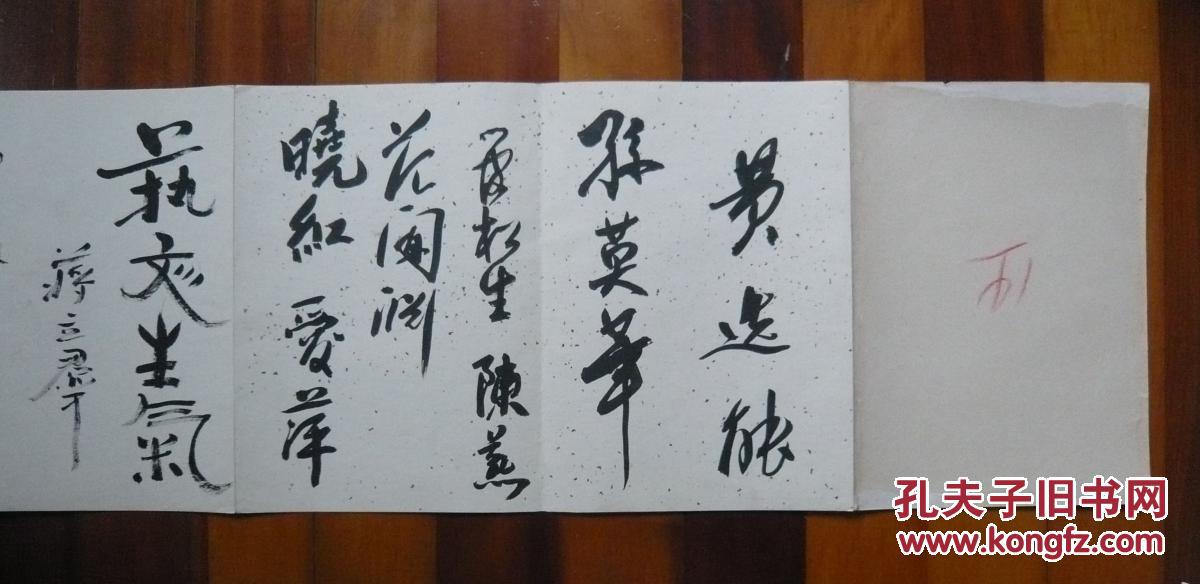 黄选能
孫莫華
松生 陳燕
曉紅 愛萍
藝文生氣
蔣立羣
孔夫子旧书网
www.kongfz.com